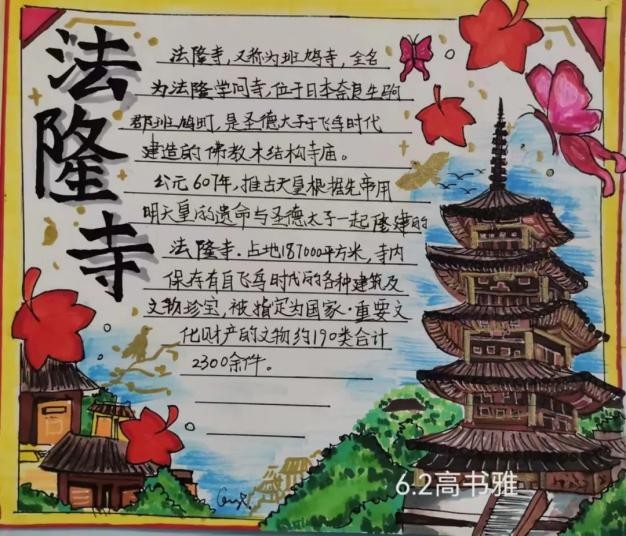 法隆寺
法隆寺，又称为斑鸠寺，全名
为法隆学问寺，位于日本奈良生驹
郡斑鸠町，是圣德太子于飞鸟时代
建造的佛教木结构寺庙。
公元607年，推古天皇根据先帝用
明天皇的遗命与圣德太子一起修建的
法隆寺．占地187000平方米，寺内
保存有自飞鸟时代的各种建筑及
文物珍宝，被指定为国家·重要文
化财产的文物约190类合计
2300余件。
6.2高书雅